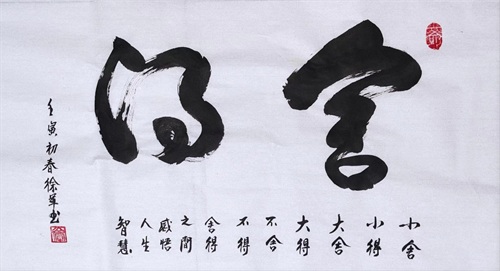 舍得
小舍
小得
大舍
大得
不舍
不得
舍得
之间
感悟
人生
智慧
壬寅初春徐军书